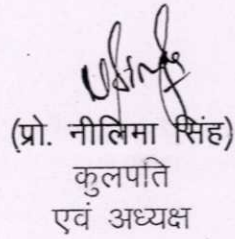 (प्रो. नीलिमा सिंह)
कुलपति
एवं अध्यक्ष